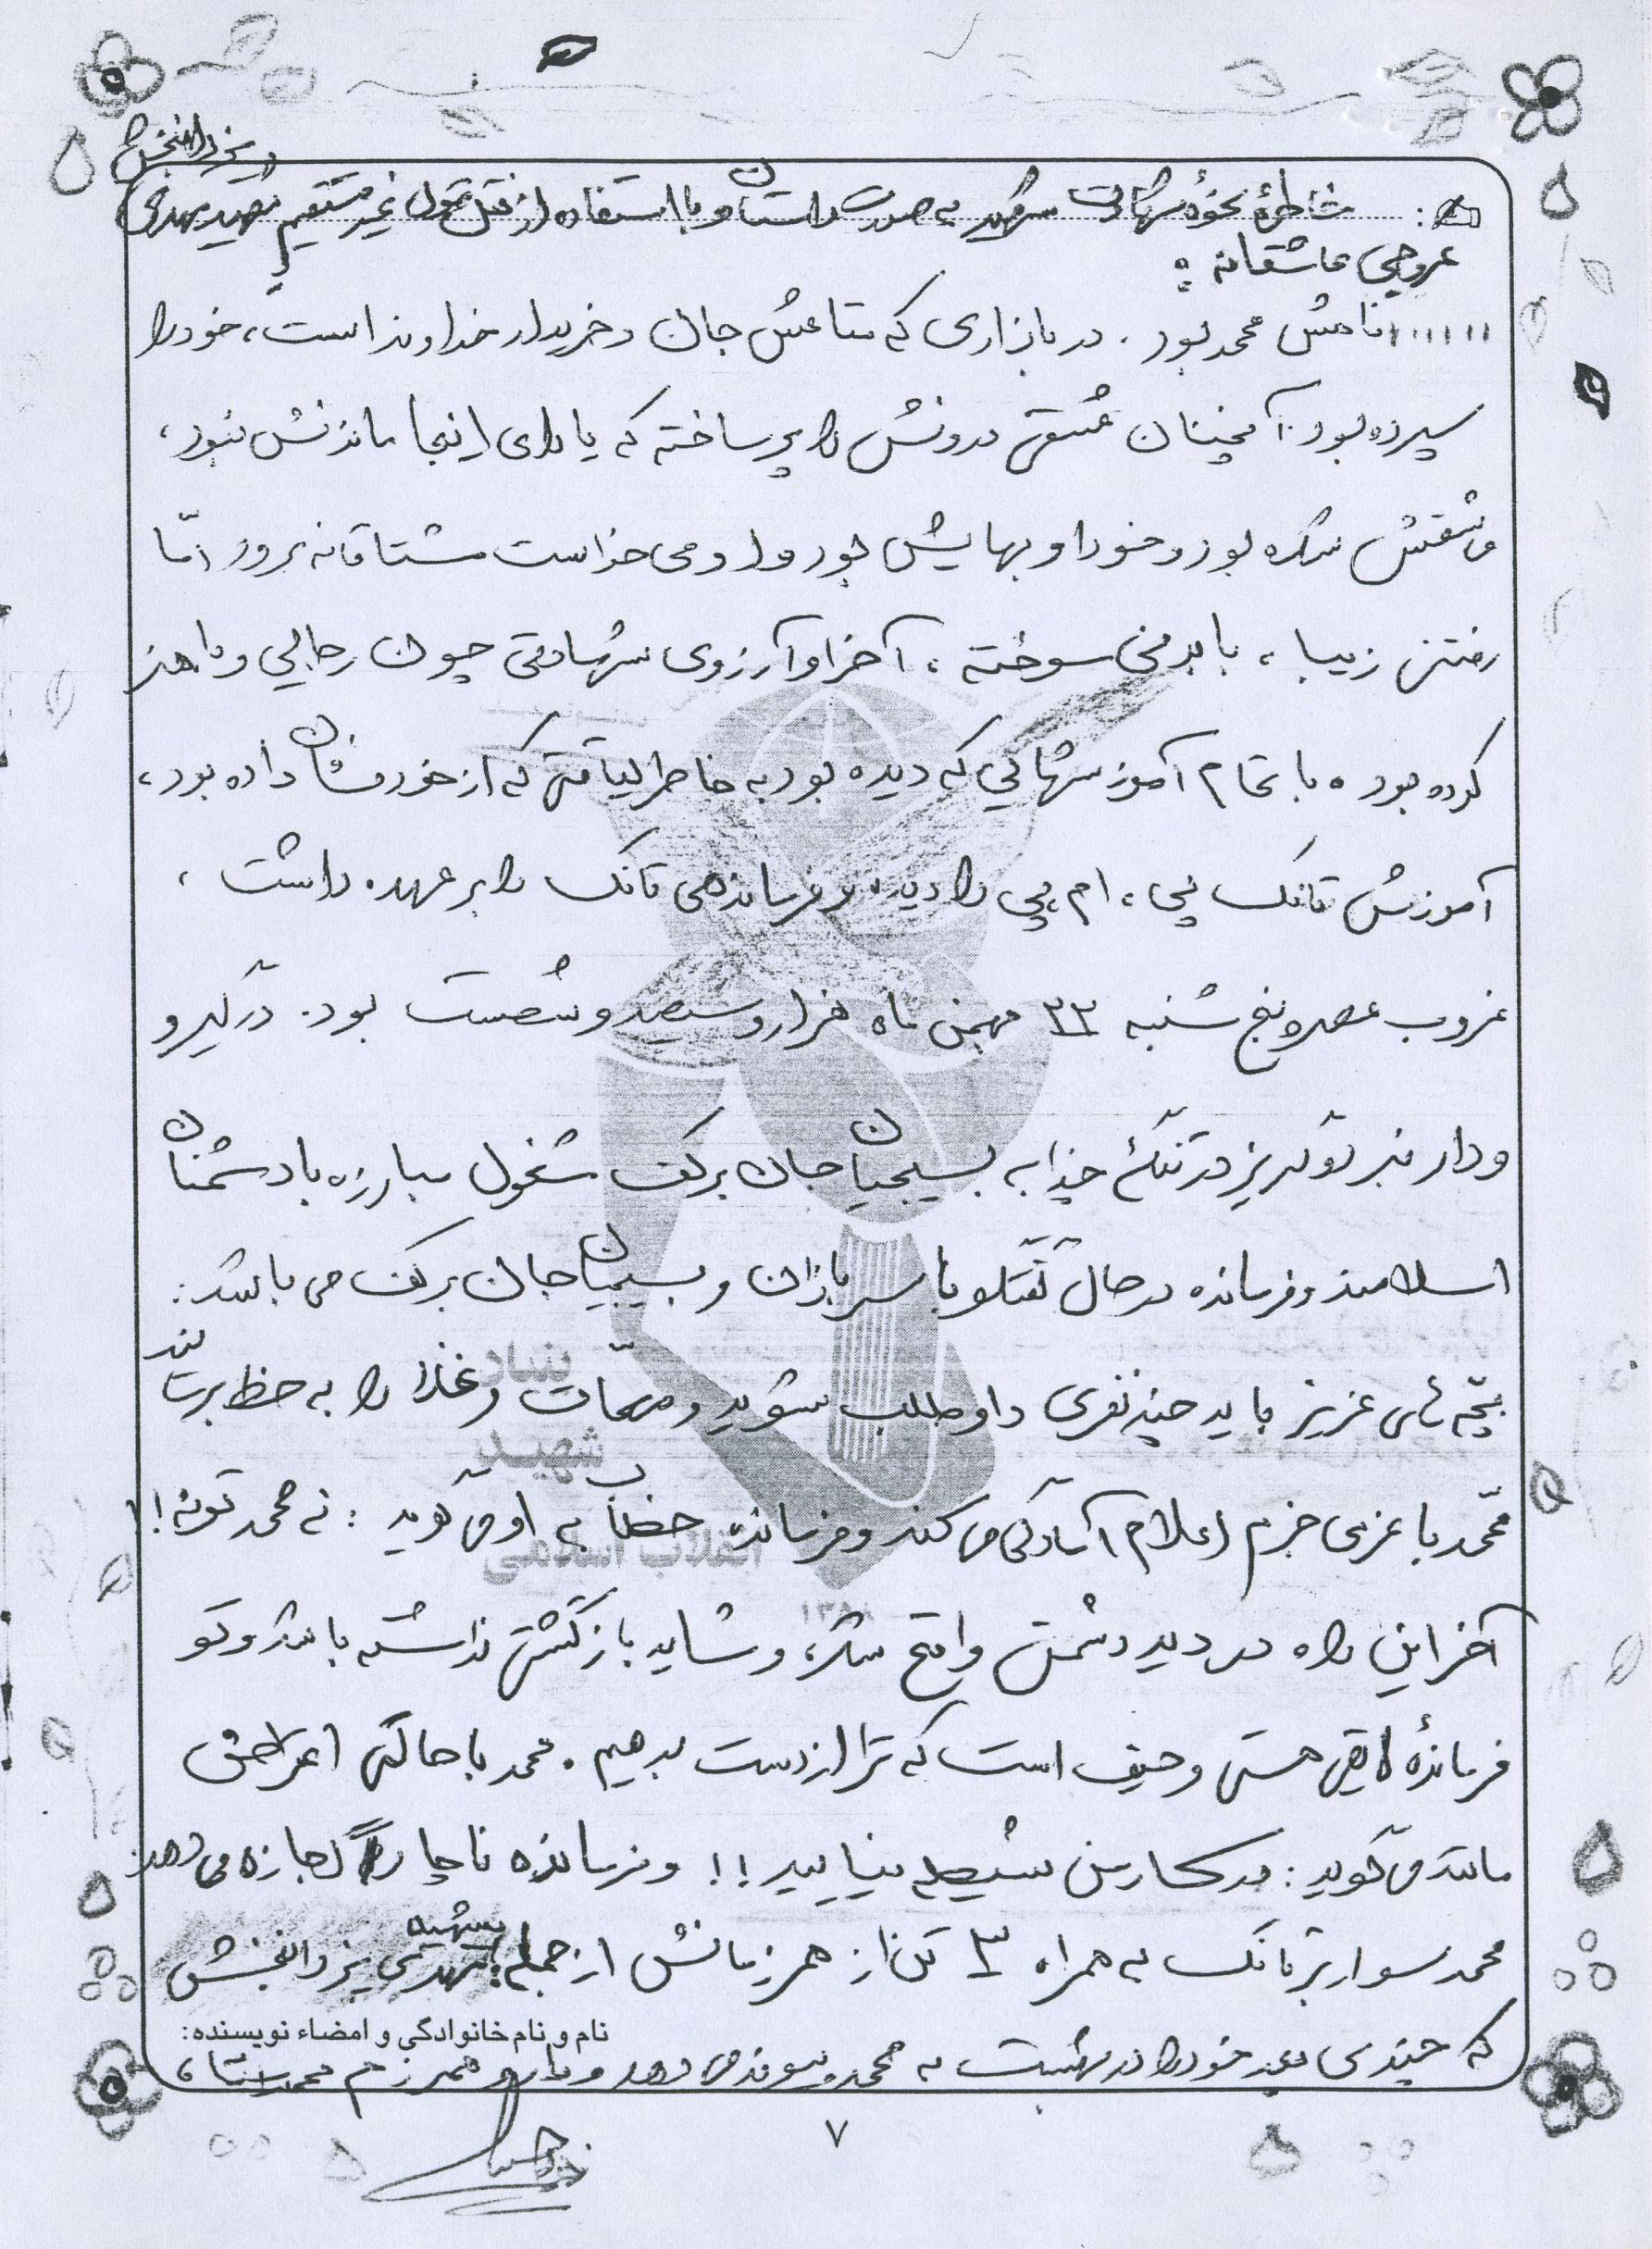 یزدانبخش
خاطرهٔ نحوهٔ شهادت شهید به صورت داستان و با استفاده از نقل قول غیر مستقیم شهید مهدی
عروجی عاشقانه :
نامش محمد بود . در بازاری که متاعش جان و خریدار خداوند است، خود را
سپرده بود. آنچنان عشق درونش را پر ساخته که یارای اینجا ماندنش نبود،
عاشقش شده بود و خدا و بهایش بود و او می خواست مشتاقانه برود امّا
رفتنی زیبا ، با بدنی سوخته ، آخر او آرزوی شهادتی چون رجایی و باهنر
کرده بود . با تمام آموزشهایی که دیده بود به خاطر لیاقتی که از خود نشان داده بود ،
آموزش تانک پی ، ام ، پی را دیده و فرماندهی تانک را بر عهده داشت ،
غروب عصر پنج شنبه ۲۲ بهمن ماه هزار و سیصد و شصت بود. درگیر و
و دار نبرد و گریز در تنگهٔ چزابه بسیجیان جان بر کف مشغول مبارزه با دشمنان
اسلامند و فرمانده در حال گفتگو با سربازان و بسیجیان جان بر کف می باشد :
بچّه های عزیز باید چند نفری داوطلب شوید و مهمّات و غذا را به خط برسانند
محمّد با عزمی جزم اعلام آمادگی می کند و فرمانده خطاب به او می گوید : نه محمد تو نه !!
آخر این راه در دید دشمن واقع شده و شاید بازگشتی نداشته باشد و تو
فرماندهٔ لایقی هستی و حیف است که ترا از دست بدهیم . محمد با حالتی اعتراض
مانند می گوید : در کار من شیطان نیایید !! و فرمانده ناچاراً اجازه می دهد
محمد سوار بر تانک به همراه ۳ تن از همرزمانش از جمله : شهید مهدی یزدانبخش
نام و نام خانوادگی و امضاء نویسنده:
که چندی بعد خود را در بهشت به محمد پیوند می دهد و یار و همرزم محمد است ،
۷
بنیاد
شهید
انقلاب اسلامی